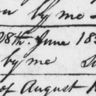 by me
28th. June 18
by me
of August